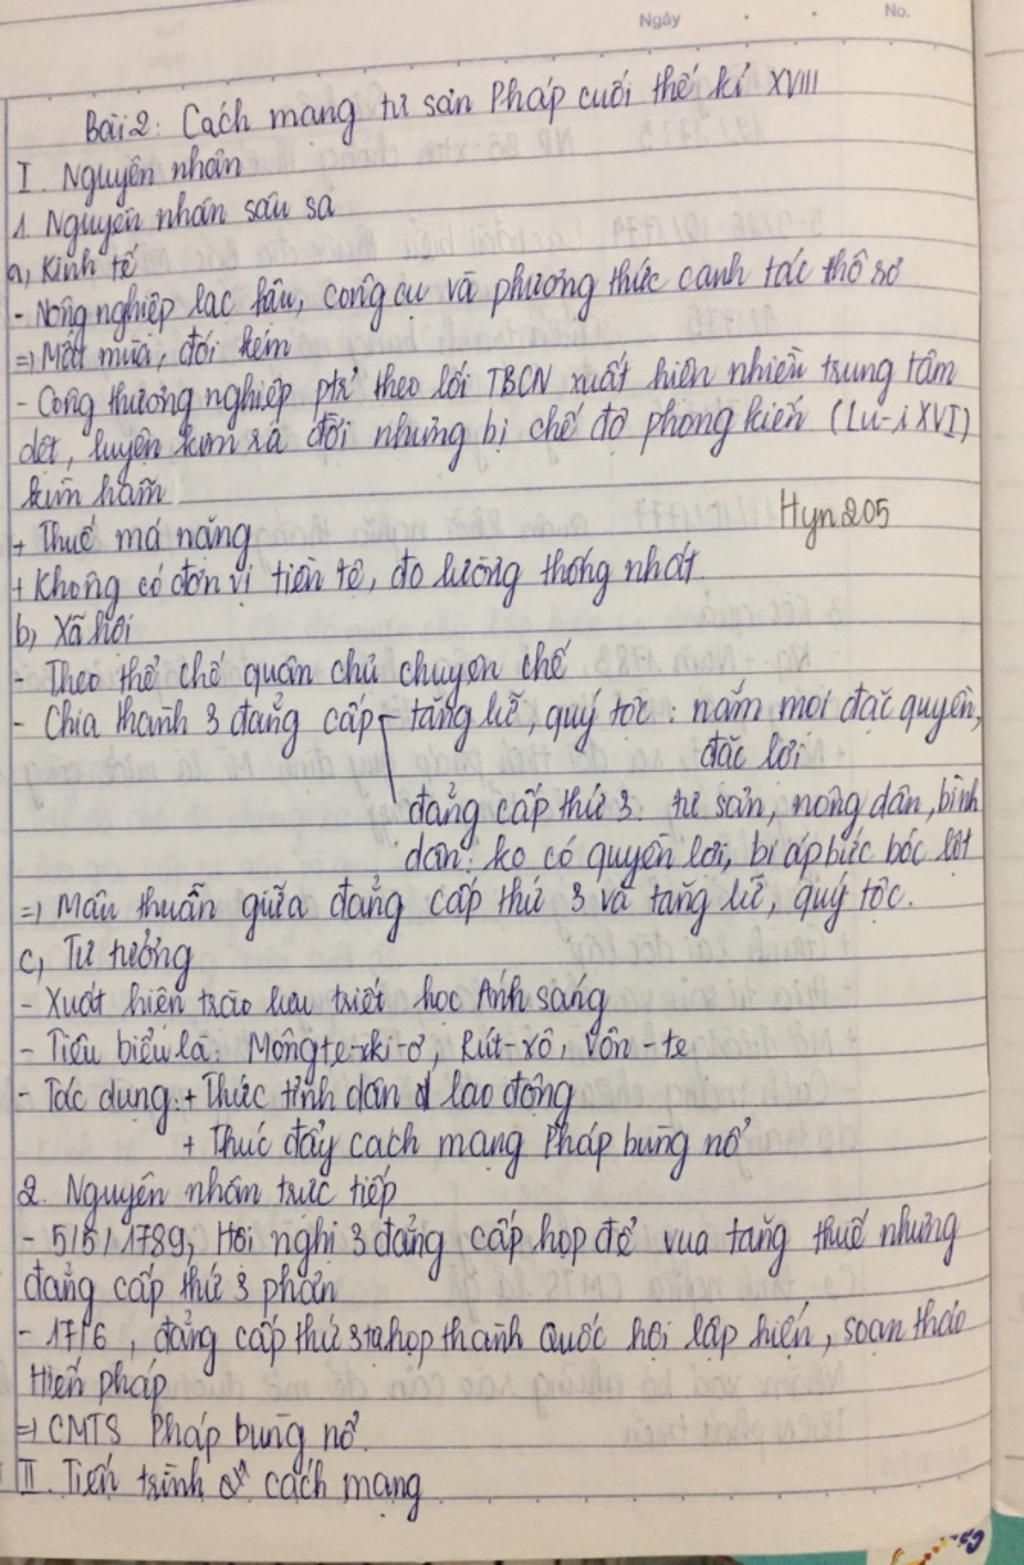 Ngày
No.
Bài 2: Cách mạng tư sản Pháp cuối thế kỉ XVIII
I. Nguyên nhân
1. Nguyên nhân sâu sa
a, Kinh tế
- Nông nghiệp lạc hậu, công cụ và phương thức canh tác thô sơ
=> Mất mùa, đói kém
- Công thương nghiệp ptr theo lối TBCN xuất hiện nhiều trung tâm
dệt, luyện kim ra đời nhưng bị chế độ phong kiến (Lu-i XVI)
kìm hãm
Hyn205
+ Thuế má nặng
+ Không có đơn vị tiền tệ, đo lường thống nhất.
b, Xã hội
- Theo thể chế quân chủ chuyên chế
- Chia thành 3 đẳng cấp tăng lữ, quý tộc: nắm mọi đặc quyền,
đặc lợi
đẳng cấp thứ 3: tư sản, nông dân, bình
dân: ko có quyền lợi, bị áp bức bóc lột
=> Mâu thuẫn giữa đẳng cấp thứ 3 và tăng lữ, quý tộc.
c, Tư tưởng
- Xuất hiện trào lưu triết học Ánh sáng
- Tiêu biểu là: Môngte-xki-ơ, Rút-xô, Vôn-te
- Tác dụng: + Thức tỉnh dân lao động
+ Thúc đẩy cách mạng Pháp bùng nổ
2. Nguyên nhân trực tiếp
- 5/5/1789, Hội nghị 3 đẳng cấp họp để vua tăng thuế nhưng
đẳng cấp thứ 3 phản
- 17/6, đẳng cấp thứ 3 tự họp thành Quốc hội lập hiến, soạn thảo
Hiến pháp
=> CMTS Pháp bùng nổ.
II. Tiến trình cách mạng